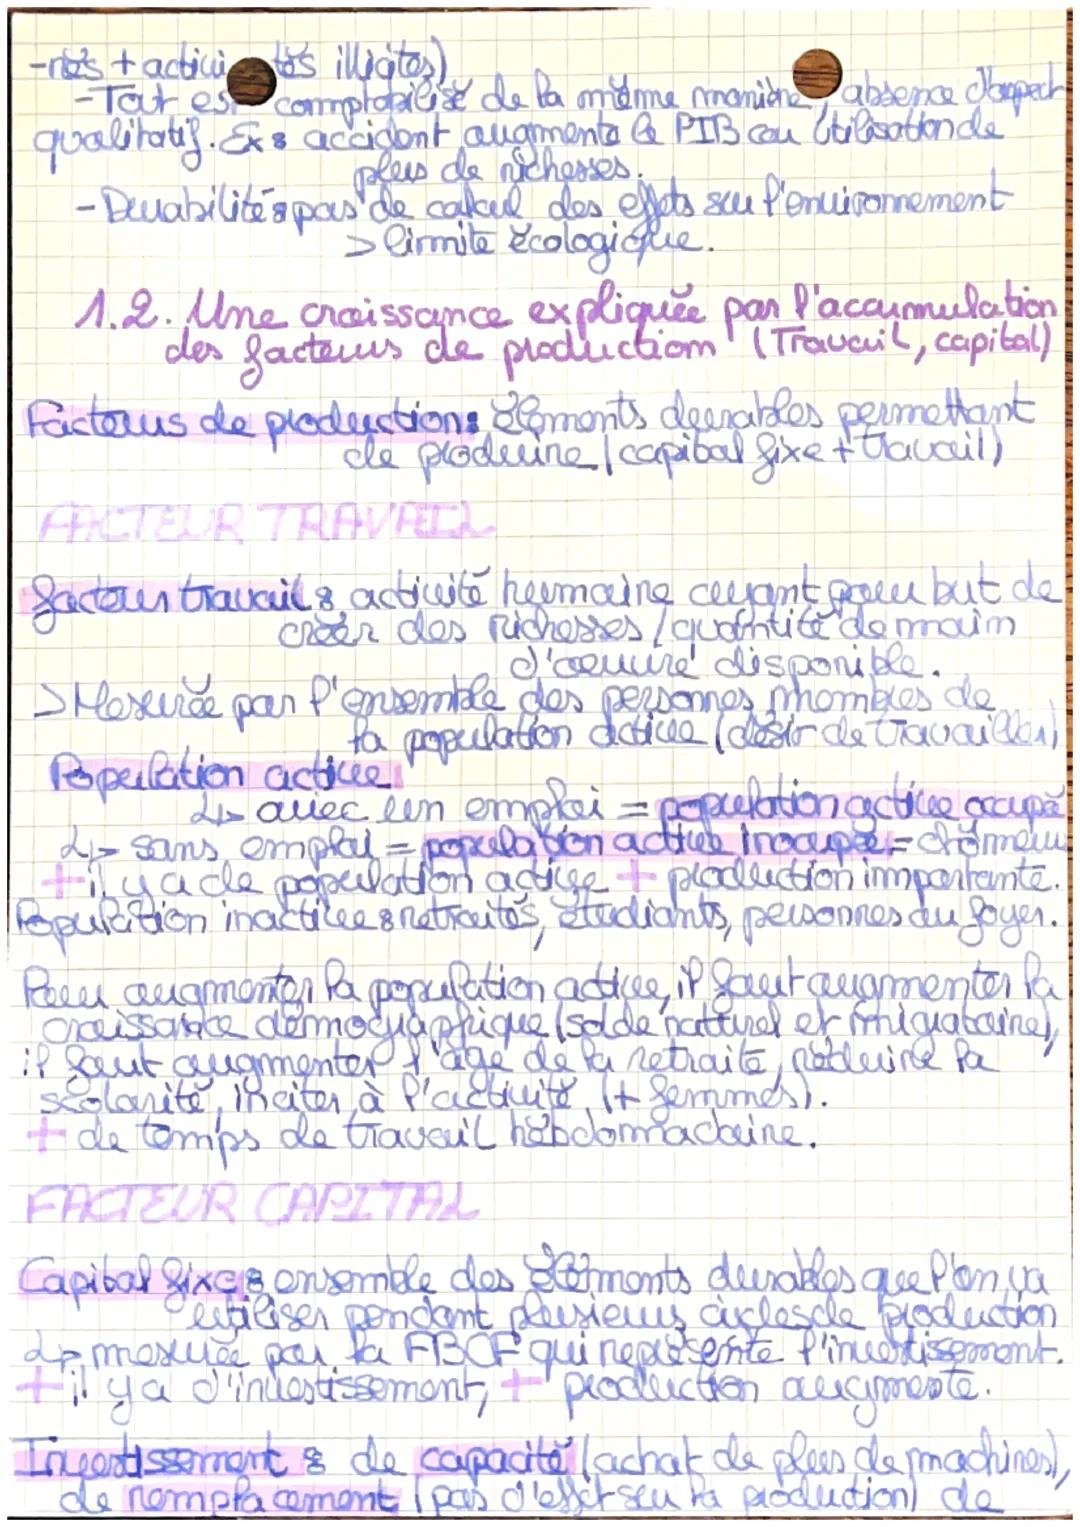 -rés + activi tés illicites)
- Tout est comptabilisé de la même manière, absence d'aspect
qualitatif. Ex : accident augmente le PIB car utilisation de
plus de richesses.
- Durabilité : pas de calcul des effets sur l'environnement
> limite écologique.
1.2. Une croissance expliquée par l'accumulation
des facteurs de production (Travail, capital)
Facteurs de production : éléments durables permettant
de produire (capital fixe + travail)
FACTEUR TRAVAIL
facteur travail : activité humaine ayant pour but de
créer des richesses / quantité de main
d'œuvre disponible.
> Mesurée par l'ensemble des personnes membres de
la population active (désir de travailler)
Population active
↳ avec un emploi = population active occupé
↳ sans emploi = population active inocupée = chômeur
+ il y a de population active + production importante.
Population inactive : retraités, étudiants, personnes au foyer.
Pour augmenter la population active, il faut augmenter la
croissance démographique (solde naturel et migratoire),
il faut augmenter l'âge de la retraite, réduire la
scolarité, inciter à l'activité (+ femmes).
+ de temps de travail hebdomadaire.
FACTEUR CAPITAL
Capital fixe : ensemble des éléments durables que l'on va
utiliser pendant plusieurs cycles de production
↳ mesurée par la FBCF qui représente l'investissement.
+ il y a d'investissement, + production augmente.
Investissement : de capacité (achat de plus de machines),
de remplacement (pas d'effet sur la production) de